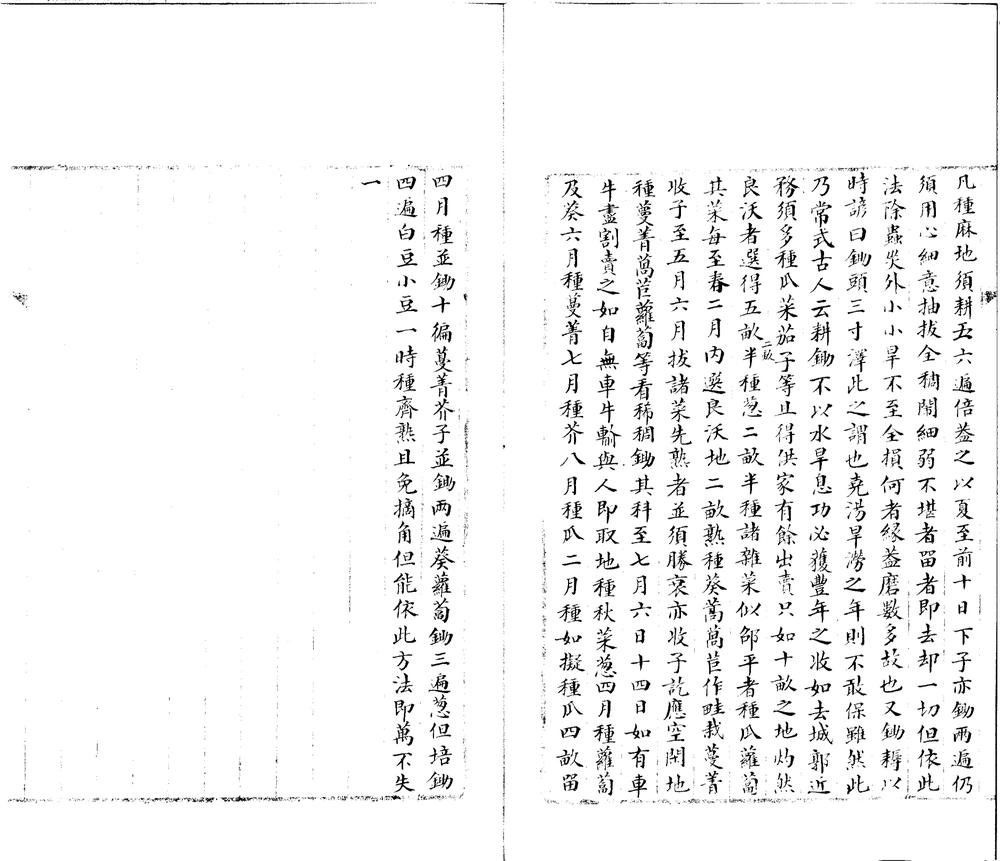 凡種麻地須耕五六遍倍蓋之以夏至前十日下子亦鋤兩遍仍
須用心細意抽拔全稠閙細弱不堪者留者即去却一切但依此
法除蟲災外小小旱不至全損何者縁蓋磨數多故也又鋤耨以
時諺曰鋤頭三寸澤此之謂也堯湯旱澇之年則不敢保雖然此
乃常式古人云耕鋤不以水旱息功必獲豐年之收如去城郭近
務須多種瓜菜茄子等且得供家有餘出賣只如十畝之地灼然
良沃者選得五畝二畝半種葱二畝半種諸雜菜似邵平者種瓜蘿蔔
其菜每至春二月內選良沃地二畝熟種葵萵苣作畦栽蔓菁
收子至五月六月拔諸菜先熟者並須勝裛亦收子訖應空閑地
種蔓菁萵苣蘿蔔等看稀稠鋤其科至七月六日十四日如有車
牛盡割賣之如自無車牛輸與人即取地種秋菜葱四月種蘿蔔
及葵六月種蔓菁七月種芥八月種瓜二月種如擬種瓜四畝留
四月種並鋤十徧蔓菁芥子並鋤兩遍葵蘿蔔鋤三遍葱但培鋤
四遍白豆小豆一時種齊熟且免摘角但能依此方法即萬不失
一